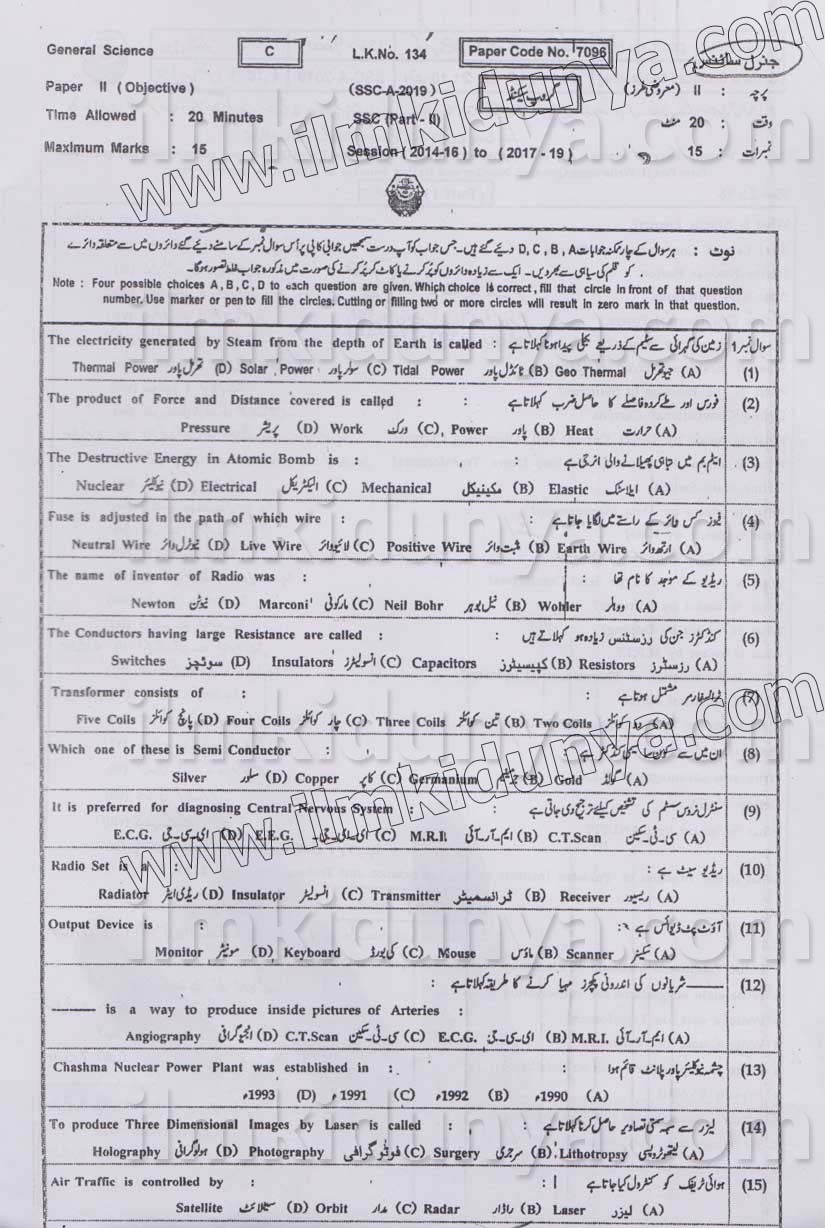 General Science C L.K.No. 134 Paper Code No. 7096 جنرل سائنس
Paper II (Objective) (SSC-A-2019) گروپ سیکنڈ پرچہ : II (معروضی طرز)
Time Allowed : 20 Minutes SSC (Part - II) وقت : 20 منٹ
Maximum Marks : 15 Session (2014-16) to (2017 - 19) نمبرات : 15
نوٹ : ہر سوال کے چار ممکنہ جوابات D, C, B, A دیئے گئے ہیں۔ جس جواب کو آپ درست سمجھیں جوابی کاپی پر اس سوال نمبر کے سامنے دیئے گئے دائروں میں سے متعلقہ دائرے
کو قلم کی سیاہی سے بھر دیں۔ ایک سے زیادہ دائروں کو پُر کرنے یا کاٹ کر پُر کرنے کی صورت میں مذکورہ جواب غلط تصور ہوگا۔
Note : Four possible choices A, B, C, D to each question are given. Which choice is correct, fill that circle in front of that question
number. Use marker or pen to fill the circles. Cutting or filling two or more circles will result in zero mark in that question.
سوال نمبر 1 زمین کی گہرائی سے سٹیم کے ذریعے بجلی پیدا ہونا کہلاتا ہے The electricity generated by Steam from the depth of Earth is called :
(1) (A) جیوتھرمل Geo Thermal (B) ٹائڈل پاور Tidal Power (C) سولر پاور Solar Power (D) تھرمل پاور Thermal Power
(2) فورس اور طے کردہ فاصلے کا حاصل ضرب کہلاتا ہے : The product of Force and Distance covered is called :
(A) حرارت Heat (B) پاور Power (C) ورک Work (D) پریشر Pressure
(3) ایٹم بم میں تباہی پھیلانے والی انرجی ہے : The Destructive Energy in Atomic Bomb is :
(A) ایلاسٹک Elastic (B) مکینیکل Mechanical (C) الیکٹریکل Electrical (D) نیوکلیئر Nuclear
(4) فیوز کس وائر کے راستے میں لگایا جاتا ہے Fuse is adjusted in the path of which wire :
(A) ارتھ وائر Earth Wire (B) مثبت وائر Positive Wire (C) لائیو وائر Live Wire (D) نیوٹرل وائر Neutral Wire
(5) ریڈیو کے موجد کا نام تھا The name of inventor of Radio was :
(A) وہلر Wohler (B) نیل بوہر Neil Bohr (C) مارکونی Marconi (D) نیوٹن Newton
(6) کنڈکٹرز جن کی رزسٹنس زیادہ ہو کہلاتے ہیں : The Conductors having large Resistance are called :
(A) رزسٹرز Resistors (B) کپیسیٹرز Capacitors (C) انسولیٹرز Insulators (D) سوئچز Switches
(7) ٹرانسفارمر مشتمل ہوتا ہے : Transformer consists of :
(A) دو کوائلز Two Coils (B) تین کوائلز Three Coils (C) چار کوائلز Four Coils (D) پانچ کوائلز Five Coils
(8) ان میں سے کون سا سیمی کنڈکٹر ہے Which one of these is Semi Conductor :
(A) گولڈ Gold (B) جرمینیم Germanium (C) کاپر Copper (D) سلور Silver
(9) سنٹرل نروس سسٹم کی تشخیص کیلئے ترجیح دی جاتی ہے It is preferred for diagnosing Central Nervous System :
(A) سی۔ٹی۔سکین C.T.Scan (B) ایم۔آر۔آئی M.R.I. (C) ای۔ای۔جی۔ E.E.G. (D) ای۔سی۔جی E.C.G.
(10) ریڈیو سیٹ ہے : Radio Set is a :
(A) ریسیور Receiver (B) ٹرانسمیٹر Transmitter (C) انسولیٹر Insulator (D) ریڈی ایٹر Radiator
(11) آؤٹ پٹ ڈیوائس ہے : Output Device is :
(A) سکینر Scanner (B) ماؤس Mouse (C) کی بورڈ Keyboard (D) مونیٹر Monitor
(12) ——— شریانوں کی اندرونی پکچرز مہیا کرنے کا طریقہ کہلاتا ہے :
——— is a way to produce inside pictures of Arteries :
(A) ایم۔آر۔آئی M.R.I. (B) ای۔سی۔جی E.C.G. (C) سی۔ٹی۔سکین C.T.Scan (D) انجیوگرافی Angiography
(13) چشمہ نیوکلیئر پاور پلانٹ قائم ہوا Chashma Nuclear Power Plant was established in :
(A) 1990ء (B) 1992ء (C) 1991ء (D) 1993ء
(14) لیزر سے سہ سمتی تصاویر حاصل کرنا کہلاتا ہے : To produce Three Dimensional Images by Laser is called :
(A) لیتھوٹروپسی Lithotropsy (B) سرجری Surgery (C) فوٹوگرافی Photography (D) ہولوگرافی Holography
(15) ہوائی ٹریفک کو کنٹرول کیا جاتا ہے Air Traffic is controlled by :
(A) لیزر Laser (B) راڈار Radar (C) مدار Orbit (D) سیٹلائٹ Satellite
www.ilmkidunya.com
www.ilmkidunya.com
ilmkidunya.com
ilmkidunya.com
ilmkidunya.com
ilmkidunya.com
ilmkidunya.com
ilmkidunya.com